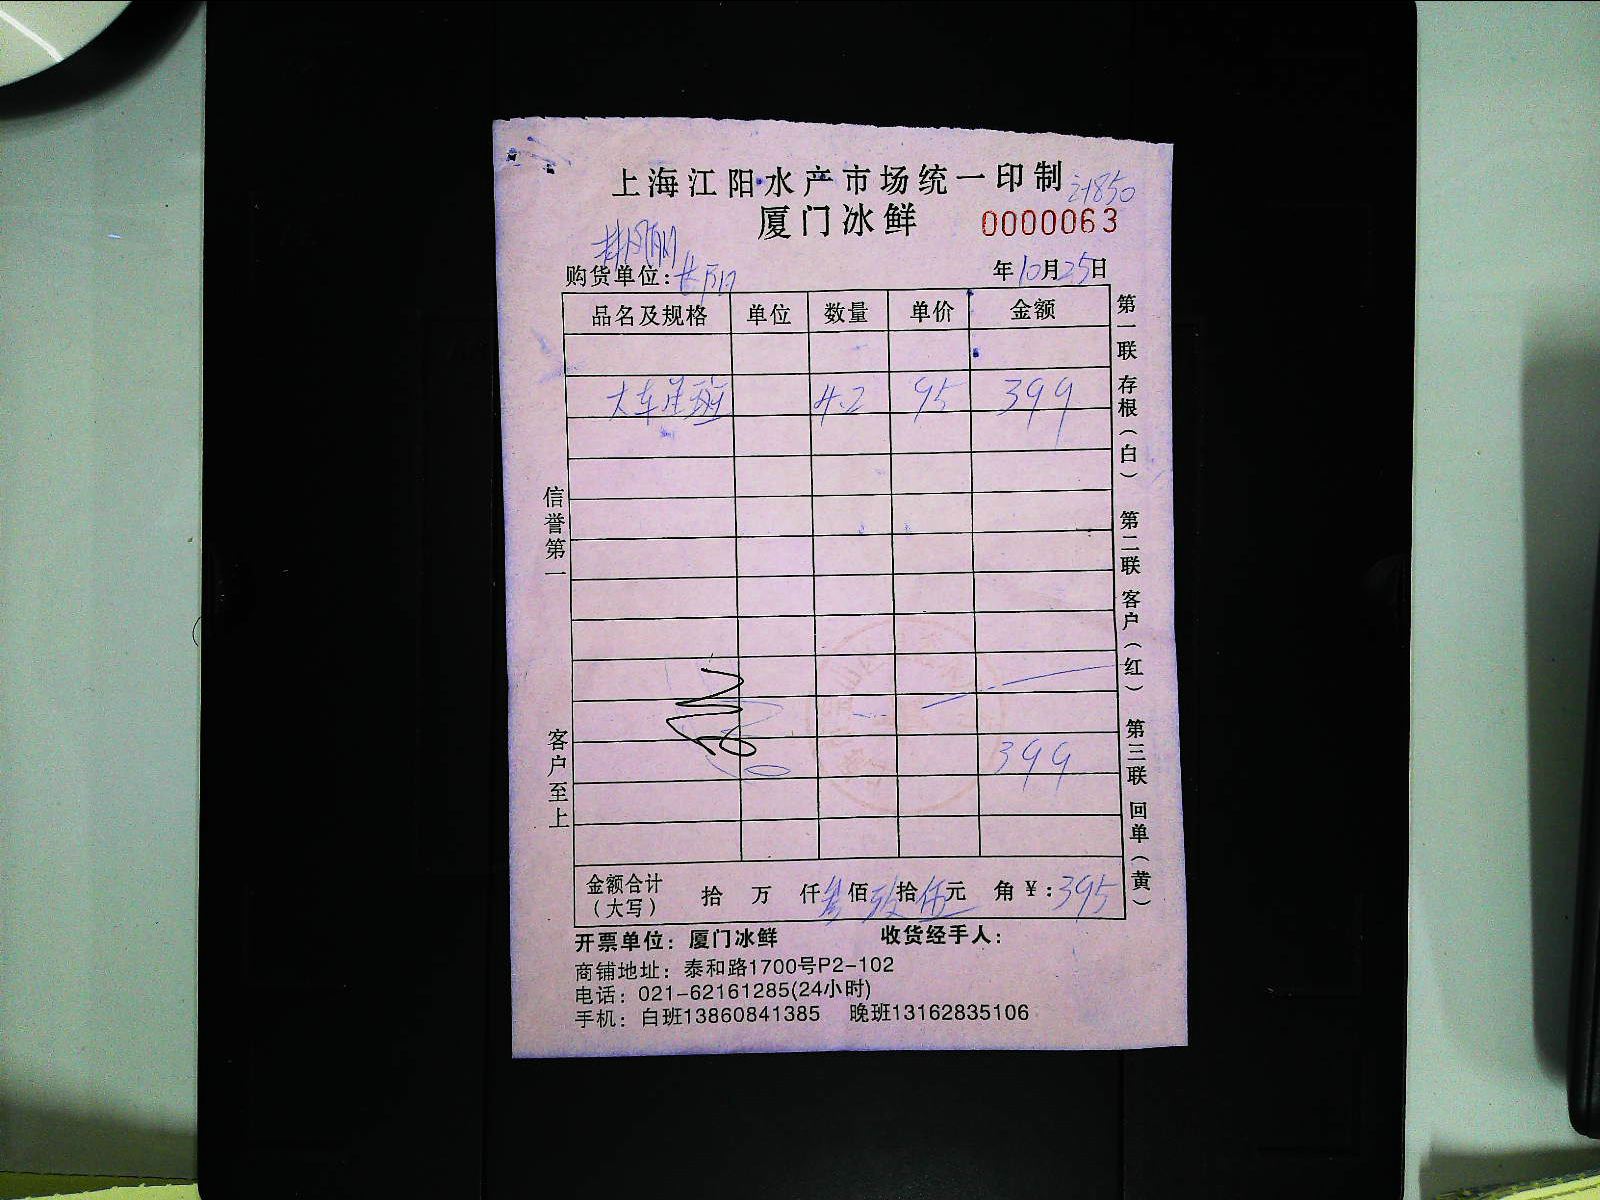 上海江阳水产市场统一印制
厦门冰鲜 0000063
购货单位:
年10月25日
品名及规格 单位 数量 单价 金额
大车 斑 4.2 95 399
399
金额合计（大写） 拾 万 仟叁佰玖拾伍元 角 ¥:395
开票单位：厦门冰鲜 收货经手人：
商铺地址：泰和路1700号P2-102
电话：021-62161285(24小时)
手机：白班13860841385 晚班13162835106
信誉第一
客户至上
第一联 存根（白） 第二联 客户（红） 第三联 回单（黄）